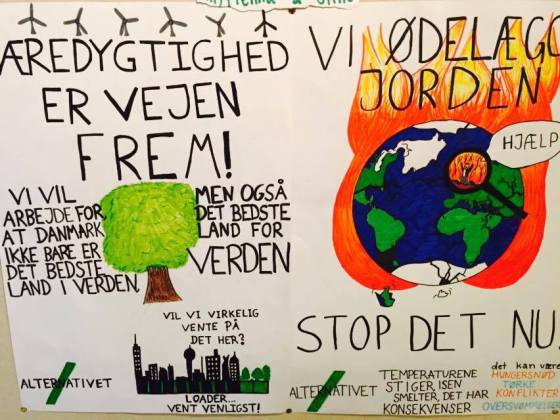 ÆREDYGTIGHED
ER VEJEN
FREM!
VI VIL
ARBEJDE FOR,
AT DANMARK
IKKE BARE ER
DET BEDSTE
LAND I VERDEN,
MEN OGSÅ
DET BEDSTE
LAND FOR
VERDEN
VIL VI VIRKELIG
VENTE PÅ
DET HER?
LOADER...
VENT VENLIGST!
ALTERNATIVET
VI ØDELÆGG
JORDEN
HJÆLP
STOP DET NU!
ALTERNATIVET
TEMPERATURENE
STIGER, ISEN
SMELTER, DET HAR
KONSEKVENSER
det kan være
HUNGERSNØD
TØRKE
KONFLIKTER
OVERSVØMMELSE